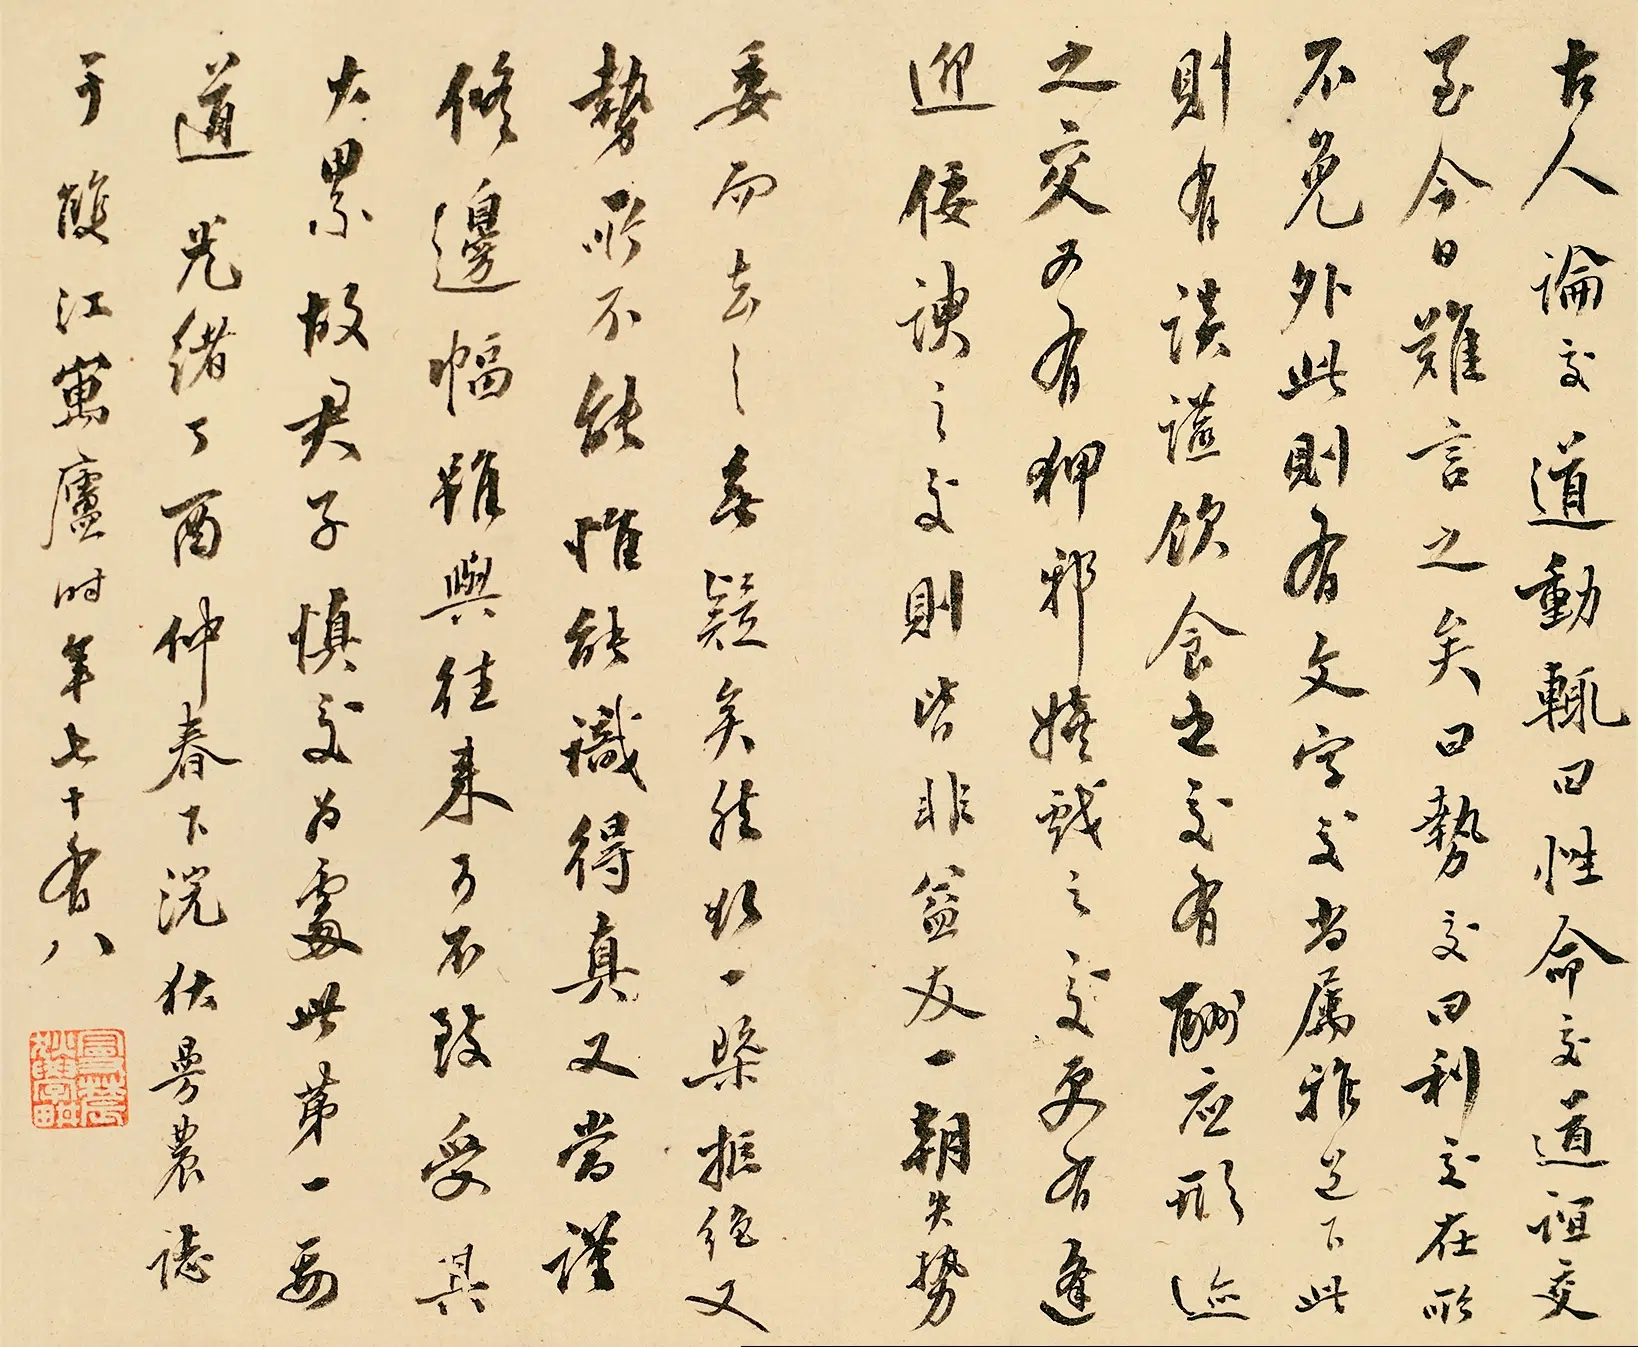 古人論交道動輒曰性命交道誼交
至今日難言之矣曰勢交曰利交在所
不免外此則有文字交尚屬雅道下此
則有談飲食之交有酬应形迹
之交又有狎邪嬉戲之交更有逢
迎佞諛之交則皆非益友一朝失勢
委而去之無疑矣然欲一槩拒絕又
勢所不能惟能識得真又當謹
修邊幅雖與往來可不致受其
大累故君子慎交為處世第一要
道 光緒丁酉仲春下浣狄曼農誌
于雙江寓廬時年七十有八
曼農
狄學畊